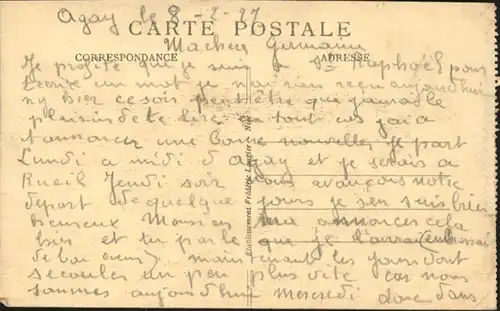 Agay le 8-2-27
CARTE POSTALE
Ma cher Germaine
CORRESPONDANCE ADRESSE
Je profite que je suis a St Raphaël pour
t'ecrire un mot je n'ai rien reçu aujourd'hui
ny hier ce soir peut être que j'aurai le
plaisir de te lire en tout cas j'ai a
t'annoncer une bonne nouvelles je part
Lundi a midi d'Agay et je serais a
Rueil Jeudi soir nous avançons notre
depart de quelque jours je s'en suis bien
heureux Monsieur m'a annoncer cela
hier et tu parle que je l'aurai embrassait
de bon cœur maintenant les jours vont
s'ecouler un peu plus vite car nous
sommes aujourd'hui mercredi donc dans
Etablissement Frédéric Laugier - Nice